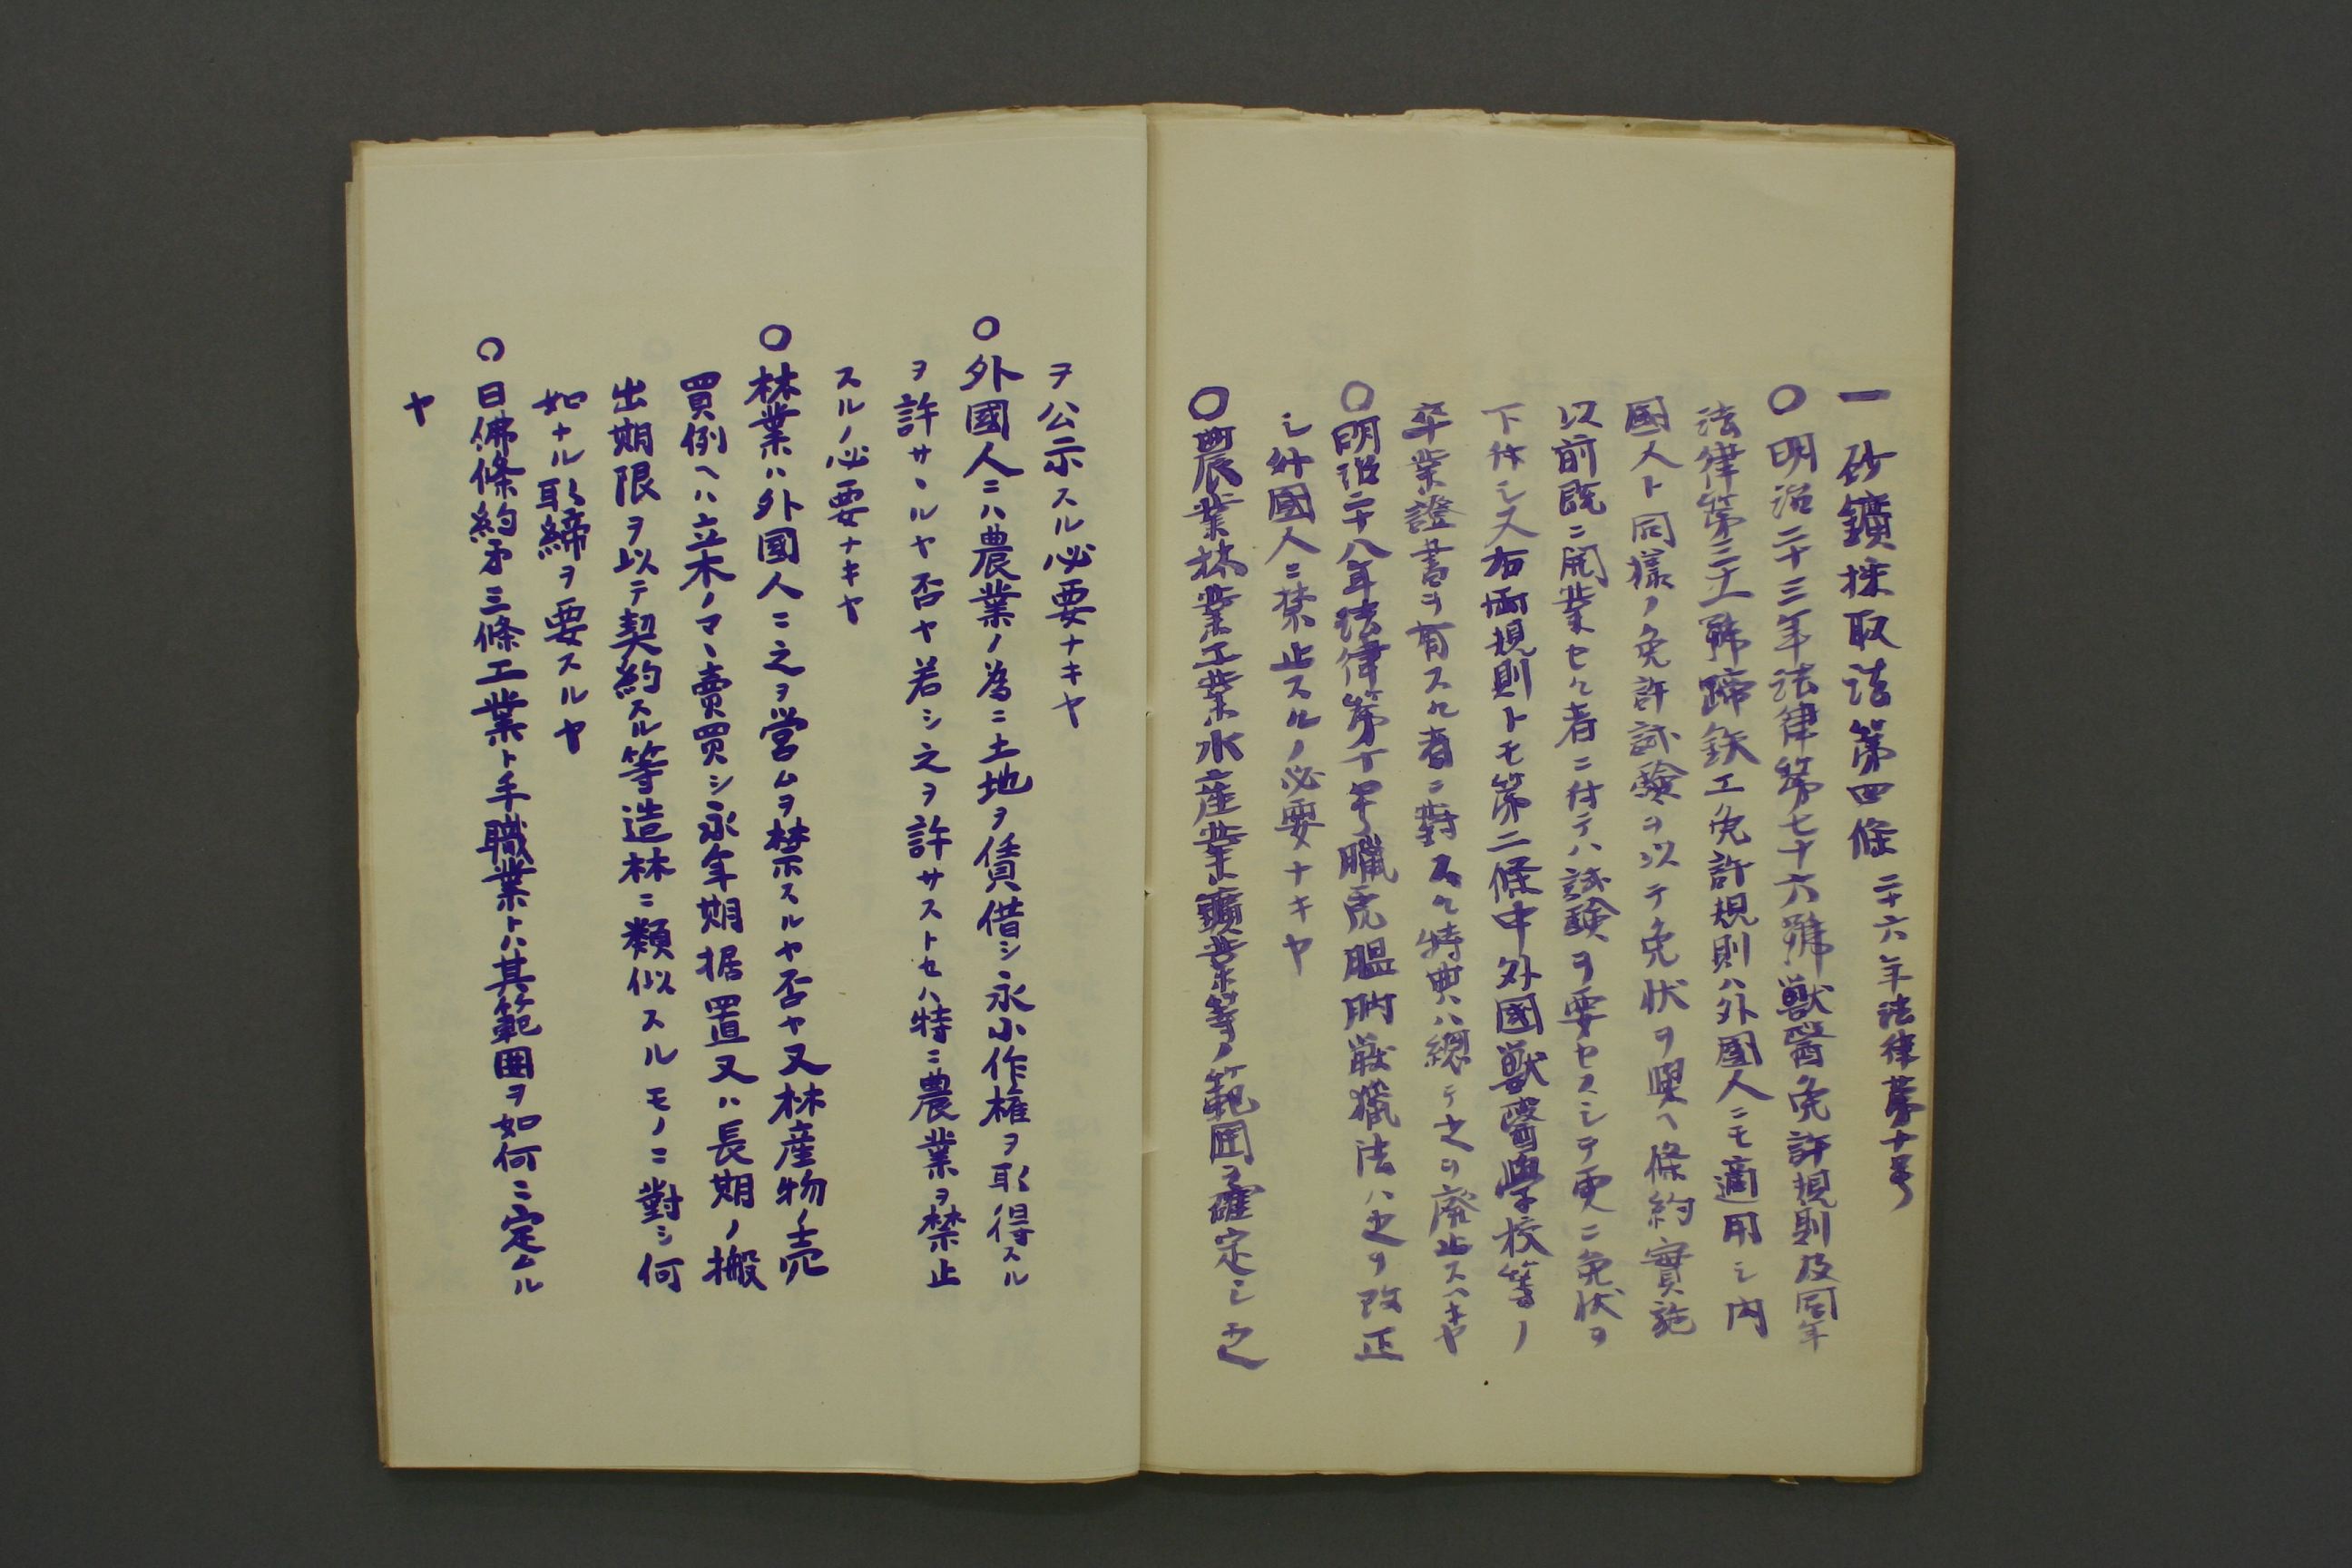 一 砂鑛採取法第四條 二十六年法律第十号
〇明治二十三年法律第七十六號獸醫免許規則及同年
法律第三十一號蹄鉄工免許規則ハ外國人ニモ適用シ内
國人ト同樣ノ免許試驗ヲ以テ免状ヲ與ヘ條約實施
以前既ニ開業セル者ニ付テハ試驗ヲ要セスシテ更ニ免状ヲ
下付シ又右両規則トモ第二條中外國獸醫學校等ノ
卒業證書ヲ有スル者ニ對スル特典ハ總テ之ヲ廢止スヘキヤ
〇明治二十八年法律第十号臘虎膃肭獣猟法ハ之ヲ改正
シ外國人ニ禁止スルノ必要ナキヤ
〇農業林業工業水産業鑛業等ノ範囲ヲ確定シ之
ヲ公示スル必要ナキヤ
〇外國人ニハ農業ノ為ニ土地ヲ賃借シ永小作権ヲ取得スル
ヲ許サヽルヤ否ヤ若シ之ヲ許サストセハ特ニ農業ヲ禁止
スルノ必要ナキヤ
〇林業ハ外國人ニ之ヲ営ムヲ禁スルヤ否ヤ又林産物ノ売
買例ヘハ立木ノマヽ賣買シ永年期据置又ハ長期ノ搬
出期限ヲ以テ契約スル等造林ニ類似スルモノニ對シ何
如ナル取締ヲ要スルヤ
〇日佛條約第三條工業ト手職業トハ其範囲ヲ如何ニ定ムル
ヤ